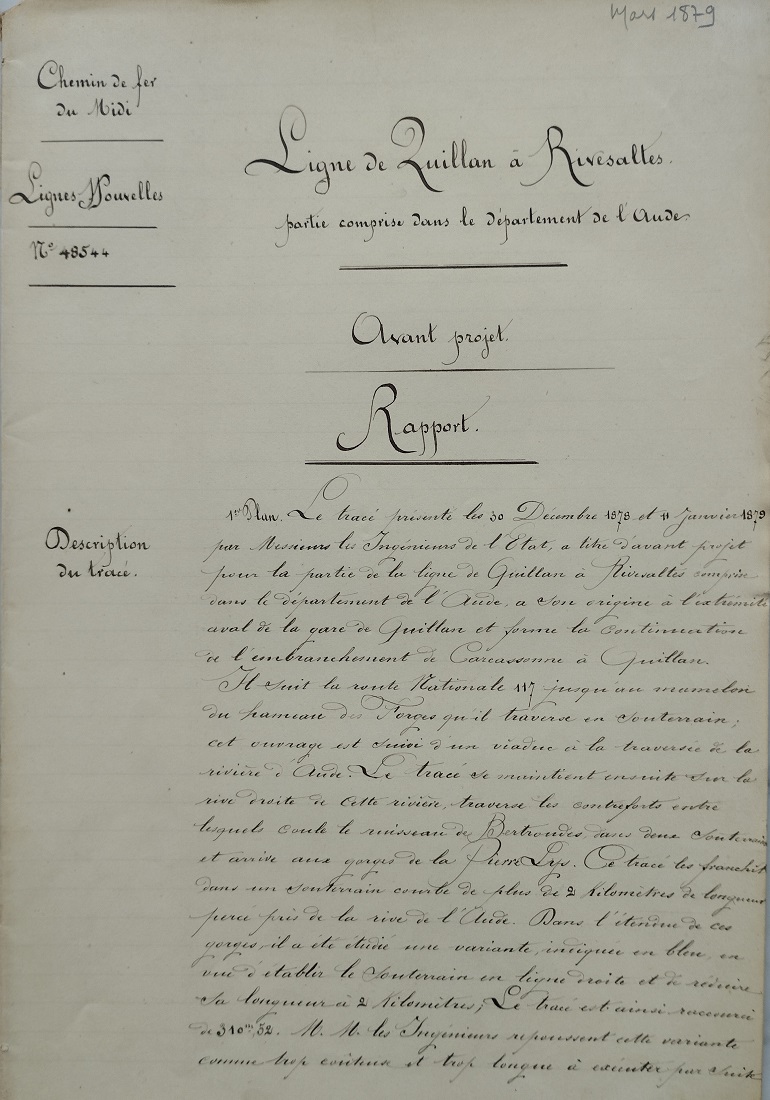 Mars 1879
Chemin de fer
du Midi
Lignes Nouvelles
N° 48544
Ligne de Quillan à Rivesaltes.
partie comprise dans le département de l'Aude.
Avant projet.
Rapport.
Description
du tracé.
1er Plan. Le tracé présenté les 30 Décembre 1878 et 11 Janvier 1879
par Messieurs les Ingénieurs de l'Etat, a titre d'avant projet
pour la partie de la ligne de Quillan à Rivesaltes comprise
dans le département de l'Aude, a son origine à l'extrémité
aval de la gare de Quillan et forme la continuation
de l'embranchement de Carcassonne à Quillan.
Il suit la route Nationale 117 jusqu'au mamelon
du hameau des Forges qu'il traverse en souterrain;
cet ouvrage est suivi d'un viaduc à la traversée de la
rivière d'Aude. Le tracé se maintient ensuite sur la
rive droite de cette rivière, traverse les contreforts entre
lesquels coule le ruisseau de Bertrondes dans deux souterrains
et arrive aux gorges de la Pierre Lys. Ce tracé les franchit
dans un souterrain courbe de plus de 2 Kilomètres de longueur
percé près de la rive de l'Aude. Dans l'étendue de ces
gorges, il a été étudié une variante, indiquée en bleu, en
vue d'établir le souterrain en ligne droite et de réduire
sa longueur à 2 Kilomètres; Le tracé est ainsi raccourci
de 310m,52. M. M. les Ingénieurs repoussent cette variante
comme trop coûteuse et trop longue à exécuter par suite